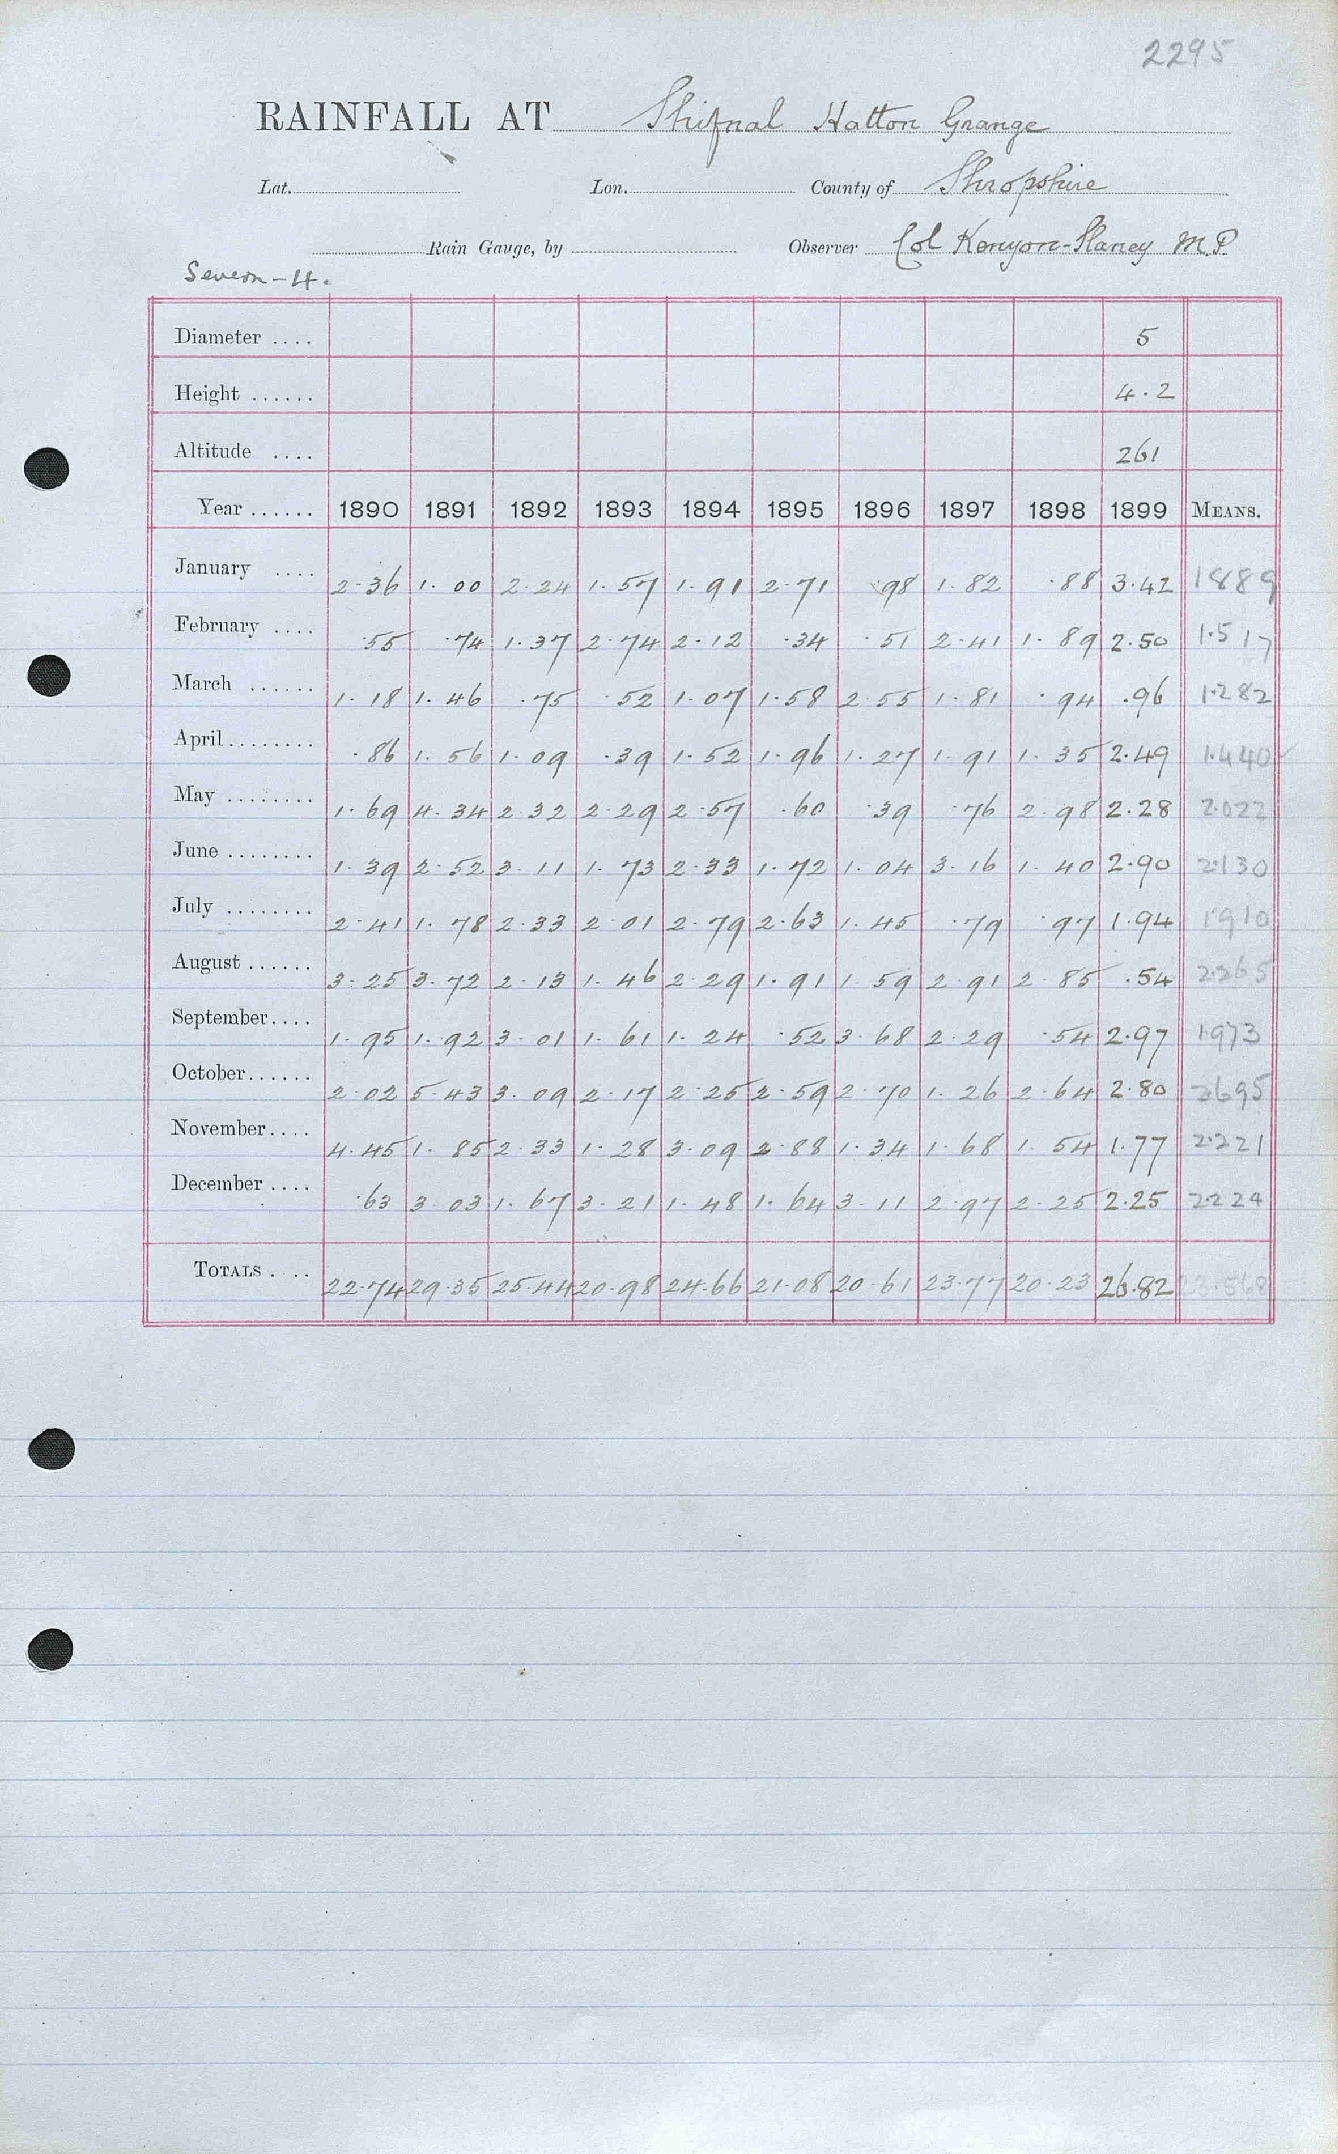 2295
RAINFALL AT Shifnal Hatton Grange
Lat. Lon. County of Shropshire
Rain Gauge, by Observer Col Kenyon-Slaney M.P.
Severn-4.
Diameter .... 5
Height ...... 4.2
Altitude .... 261
Year ...... 1890 1891 1892 1893 1894 1895 1896 1897 1898 1899 MEANS.
January .... 2.36 1.00 2.24 1.57 1.91 2.71 .98 1.82 .88 3.42 1889
February .... .55 .74 1.37 2.74 2.12 .34 .51 2.41 1.89 2.50 1.517
March ...... 1.18 1.46 .75 .52 1.07 1.58 2.55 1.81 .94 .96 1.282
April ........ .86 1.56 1.09 .39 1.52 1.96 1.27 1.91 1.35 2.49 1.440
May ........ 1.69 4.34 2.32 2.29 2.57 .60 .39 .76 2.98 2.28 2.022
June ........ 1.39 2.52 3.11 1.73 2.33 1.72 1.04 3.16 1.40 2.90 2.130
July ........ 2.41 1.78 2.33 2.01 2.79 2.63 1.45 .79 .97 1.94 1.910
August ...... 3.25 3.72 2.13 1.46 2.29 1.91 1.59 2.91 2.85 .54 2.265
September .... 1.95 1.92 3.01 1.61 1.24 .52 3.68 2.29 .54 2.97 1.973
October ...... 2.02 5.43 3.09 2.17 2.25 2.59 2.70 1.26 2.64 2.80 2695
November .... 4.45 1.85 2.33 1.28 3.09 2.88 1.34 1.68 1.54 1.77 2.221
December .... .63 3.03 1.67 3.21 1.48 1.64 3.11 2.97 2.25 2.25 2.224
TOTALS .... 22.74 29.35 25.44 20.98 24.66 21.08 20.61 23.77 20.23 26.82 23.568